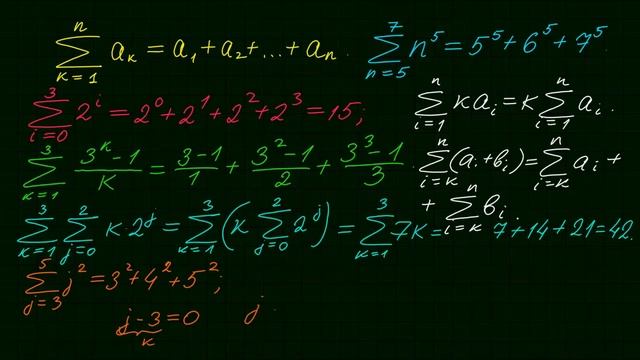 \sum_{k=1}^{n} a_k = a_1 + a_2 + ... + a_n.
\sum_{n=5}^{7} n^5 = 5^5 + 6^5 + 7^5
\sum_{i=0}^{3} 2^i = 2^0 + 2^1 + 2^2 + 2^3 = 15;
\sum_{i=1}^{n} k a_i = k \sum_{i=1}^{n} a_i.
\sum_{k=1}^{3} \frac{3^k - 1}{k} = \frac{3-1}{1} + \frac{3^2-1}{2} + \frac{3^3-1}{3}.
\sum_{i=k}^{n} (a_i + b_i) = \sum_{i=k}^{n} a_i +
+ \sum_{i=k}^{n} b_i.
\sum_{k=1}^{3} \sum_{j=0}^{2} k \cdot 2^j = \sum_{k=1}^{3} (k \sum_{j=0}^{2} 2^j) = \sum_{k=1}^{3} 7k = 7 + 14 + 21 = 42.
\sum_{j=3}^{5} j^2 = 3^2 + 4^2 + 5^2;
\underbrace{j - 3}_{k} = 0
j